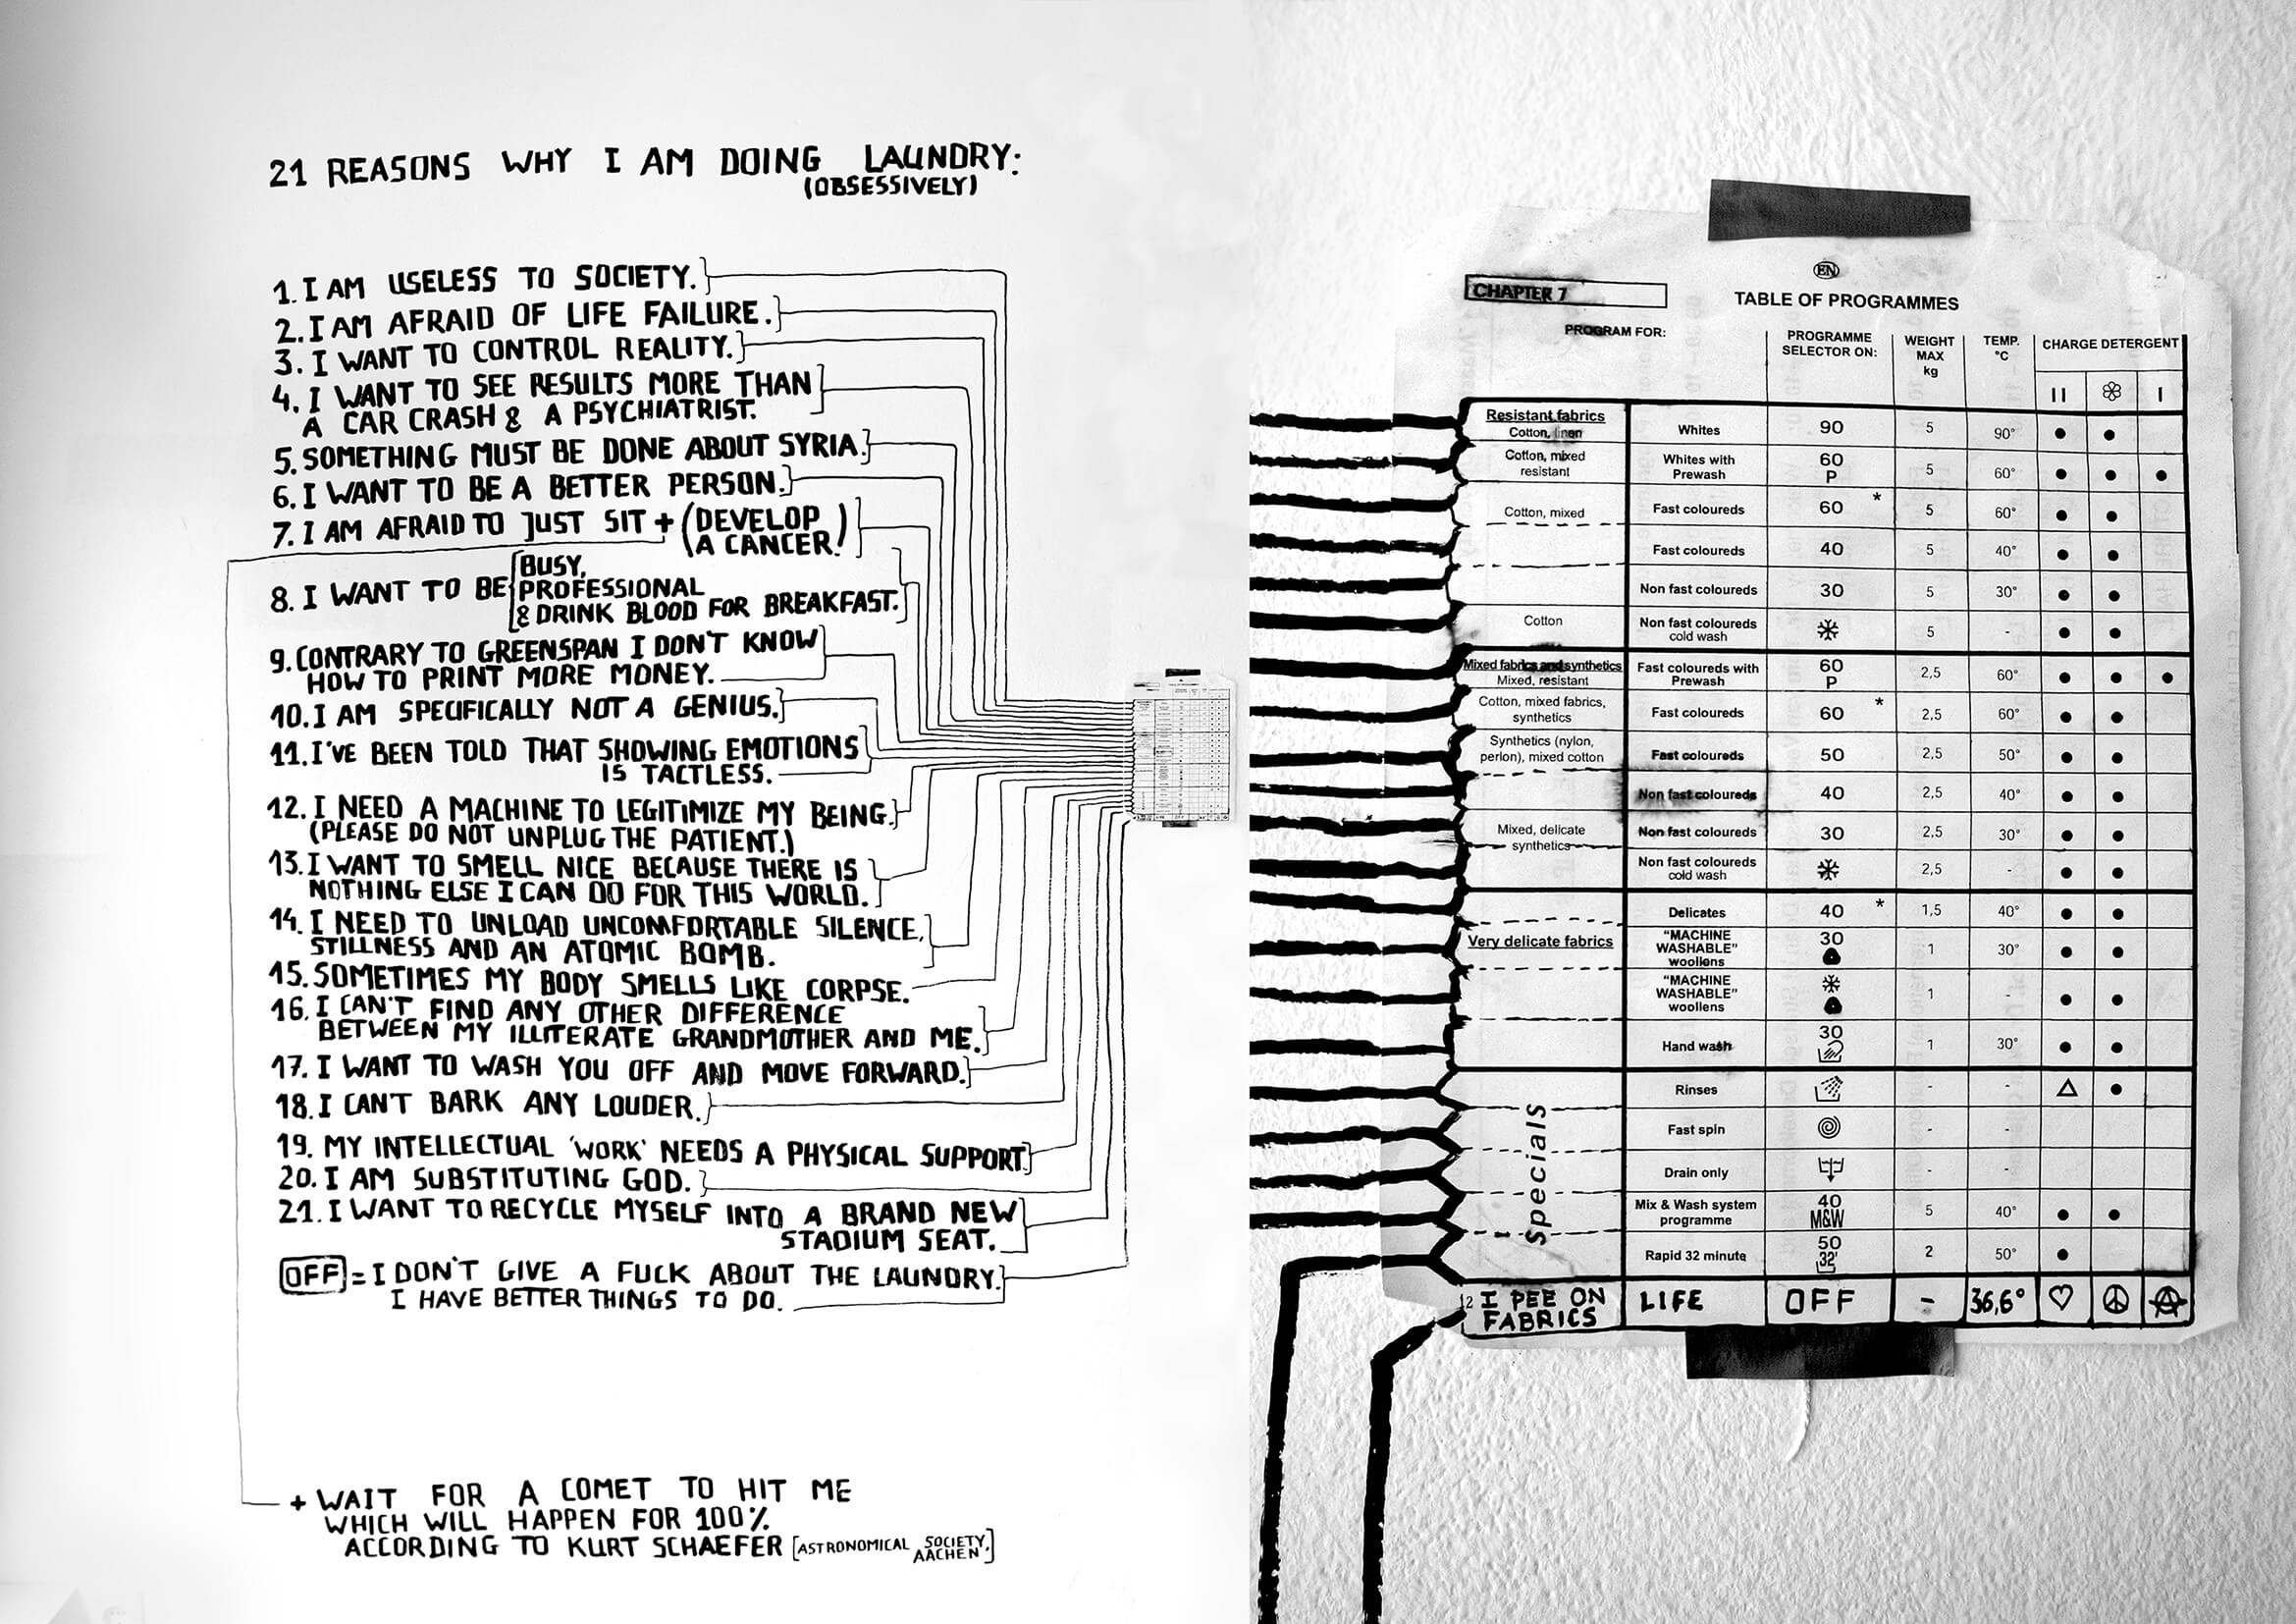 21 REASONS WHY I AM DOING LAUNDRY:
(OBSESSIVELY)
1. I AM USELESS TO SOCIETY.
2. I AM AFRAID OF LIFE FAILURE.
3. I WANT TO CONTROL REALITY.
4. I WANT TO SEE RESULTS MORE THAN
A CAR CRASH & A PSYCHIATRIST.
5. SOMETHING MUST BE DONE ABOUT SYRIA.
6. I WANT TO BE A BETTER PERSON.
7. I AM AFRAID TO JUST SIT + (DEVELOP
A CANCER.)
8. I WANT TO BE [BUSY,
PROFESSIONAL
& DRINK BLOOD FOR BREAKFAST.
9. CONTRARY TO GREENSPAN I DON'T KNOW
HOW TO PRINT MORE MONEY.
10. I AM SPECIFICALLY NOT A GENIUS.
11. I'VE BEEN TOLD THAT SHOWING EMOTIONS
IS TACTLESS.
12. I NEED A MACHINE TO LEGITIMIZE MY BEING.
(PLEASE DO NOT UNPLUG THE PATIENT.)
13. I WANT TO SMELL NICE BECAUSE THERE IS
NOTHING ELSE I CAN DO FOR THIS WORLD.
14. I NEED TO UNLOAD UNCOMFORTABLE SILENCE,
STILLNESS AND AN ATOMIC BOMB.
15. SOMETIMES MY BODY SMELLS LIKE CORPSE.
16. I CAN'T FIND ANY OTHER DIFFERENCE
BETWEEN MY ILLITERATE GRANDMOTHER AND ME.
17. I WANT TO WASH YOU OFF AND MOVE FORWARD.
18. I CAN'T BARK ANY LOUDER.
19. MY INTELLECTUAL 'WORK' NEEDS A PHYSICAL SUPPORT.
20. I AM SUBSTITUTING GOD.
21. I WANT TO RECYCLE MYSELF INTO A BRAND NEW
STADIUM SEAT.
OFF = I DON'T GIVE A FUCK ABOUT THE LAUNDRY.
I HAVE BETTER THINGS TO DO.
+ WAIT FOR A COMET TO HIT ME
WHICH WILL HAPPEN FOR 100%
ACCORDING TO KURT SCHAEFER [ASTRONOMICAL SOCIETY, AACHEN]
EN
CHAPTER 7
TABLE OF PROGRAMMES
PROGRAM FOR:
PROGRAMME SELECTOR ON:
WEIGHT MAX kg
TEMP. °C
CHARGE DETERGENT
II ❀ I
Resistant fabrics
Cotton, linen Whites 90 5 90° ● ●
Cotton, mixed resistant Whites with Prewash 60 P 5 60° ● ● ●
Cotton, mixed Fast coloureds 60 * 5 60° ● ●
Fast coloureds 40 5 40° ● ●
Non fast coloureds 30 5 30° ● ●
Cotton Non fast coloureds cold wash 5 - ● ●
Mixed fabrics and synthetics
Mixed, resistant Fast coloureds with Prewash 60 P 2,5 60° ● ● ●
Cotton, mixed fabrics, synthetics Fast coloureds 60 * 2,5 60° ● ●
Synthetics (nylon, perlon), mixed cotton Fast coloureds 50 2,5 50° ● ●
Non fast coloureds 40 2,5 40° ● ●
Mixed, delicate synthetics Non fast coloureds 30 2,5 30° ● ●
Non fast coloureds cold wash 2,5 - ● ●
Delicates 40 * 1,5 40° ● ●
Very delicate fabrics "MACHINE WASHABLE" woollens 30 1 30° ● ●
"MACHINE WASHABLE" woollens 1 - ● ●
Hand wash 30 1 30° ● ●
Specials
Rinses - - △ ●
Fast spin - -
Drain only - -
Mix & Wash system programme 40 M&W 5 40° ● ●
Rapid 32 minute 50 32' 2 50° ●
2 I PEE ON FABRICS LIFE OFF - 36,6° ♡ ☮ Ⓐ